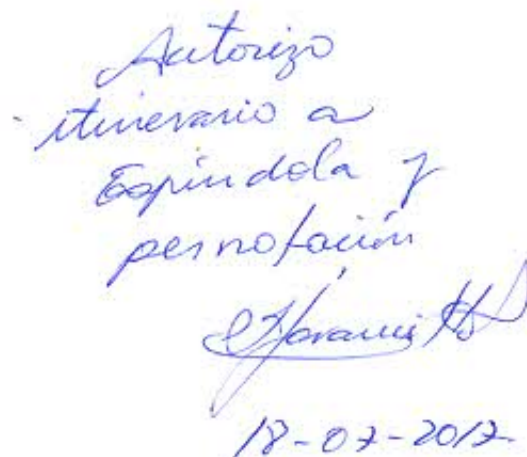 Autorizo
itinerario a
Espíndola y
pernotación
18-07-2017